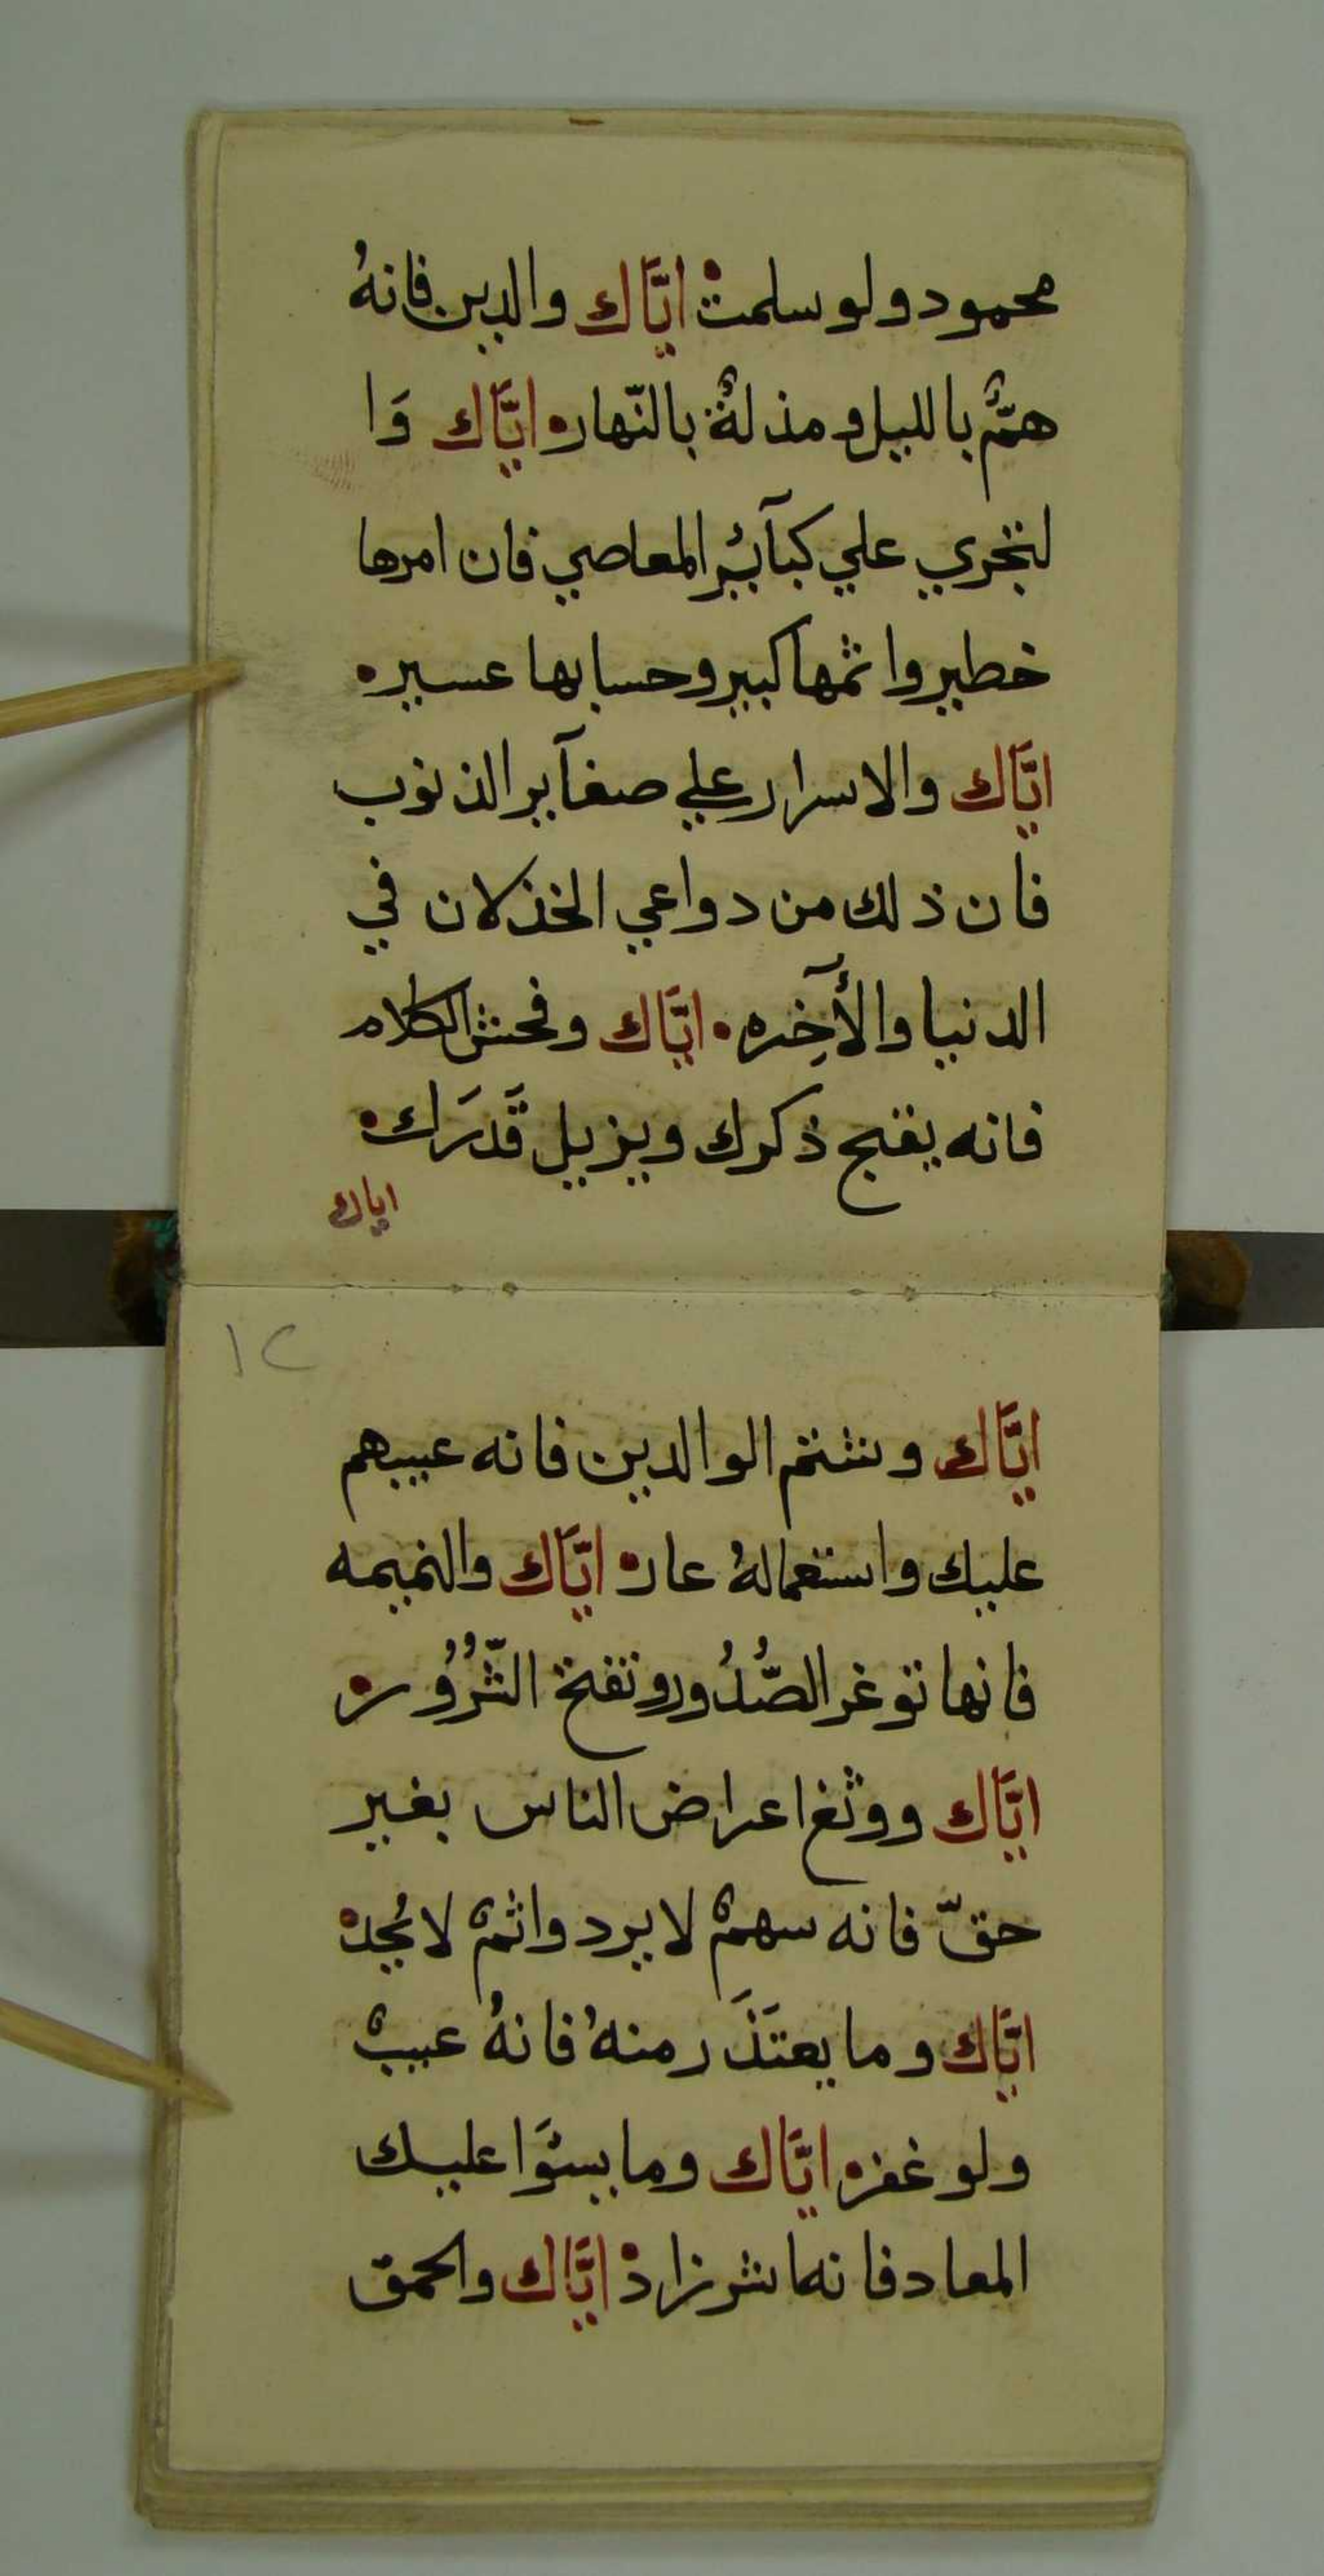 محمود ولو سلمت۰ ايَّاك والدين فانهُ
همٌّ بالليل ومذلةٌ بالنّهار۰ ايَّاك وَا
لتجري علي كبآئر المعاصي فان امرها
خطير واثمها كبير وحسابها عسير۰
ايَّاك والاسرار علي صغآير الذنوب
فان ذلك من دواعي الخذلان في
الدنيا والأٓخِره۰ ايَّاك وفحش الكلام
فانه يقبح ذكرك ويزيل قَدَرَك۰
اياك
١٢
ايَّاك وشتم الوالدين فانه عيبهم
عليك واستعمالهُ عار۰ ايَّاك والنميمه
فانها توغر الصُّدُور وتفتح الشُّرُور۰
ايَّاك ووثغ اعراض الناس بغير
حقّ فانه سهمٌ لا يرد واثمٌ لا يُجد۰
ايَّاك وما يعتَذَر منهُ فانهُ عيبٌ
ولو غفر۰ ايَّاك وما يسؤَا عليك
المعاد فانه اشر زاد۰ ايَّاك والحمق